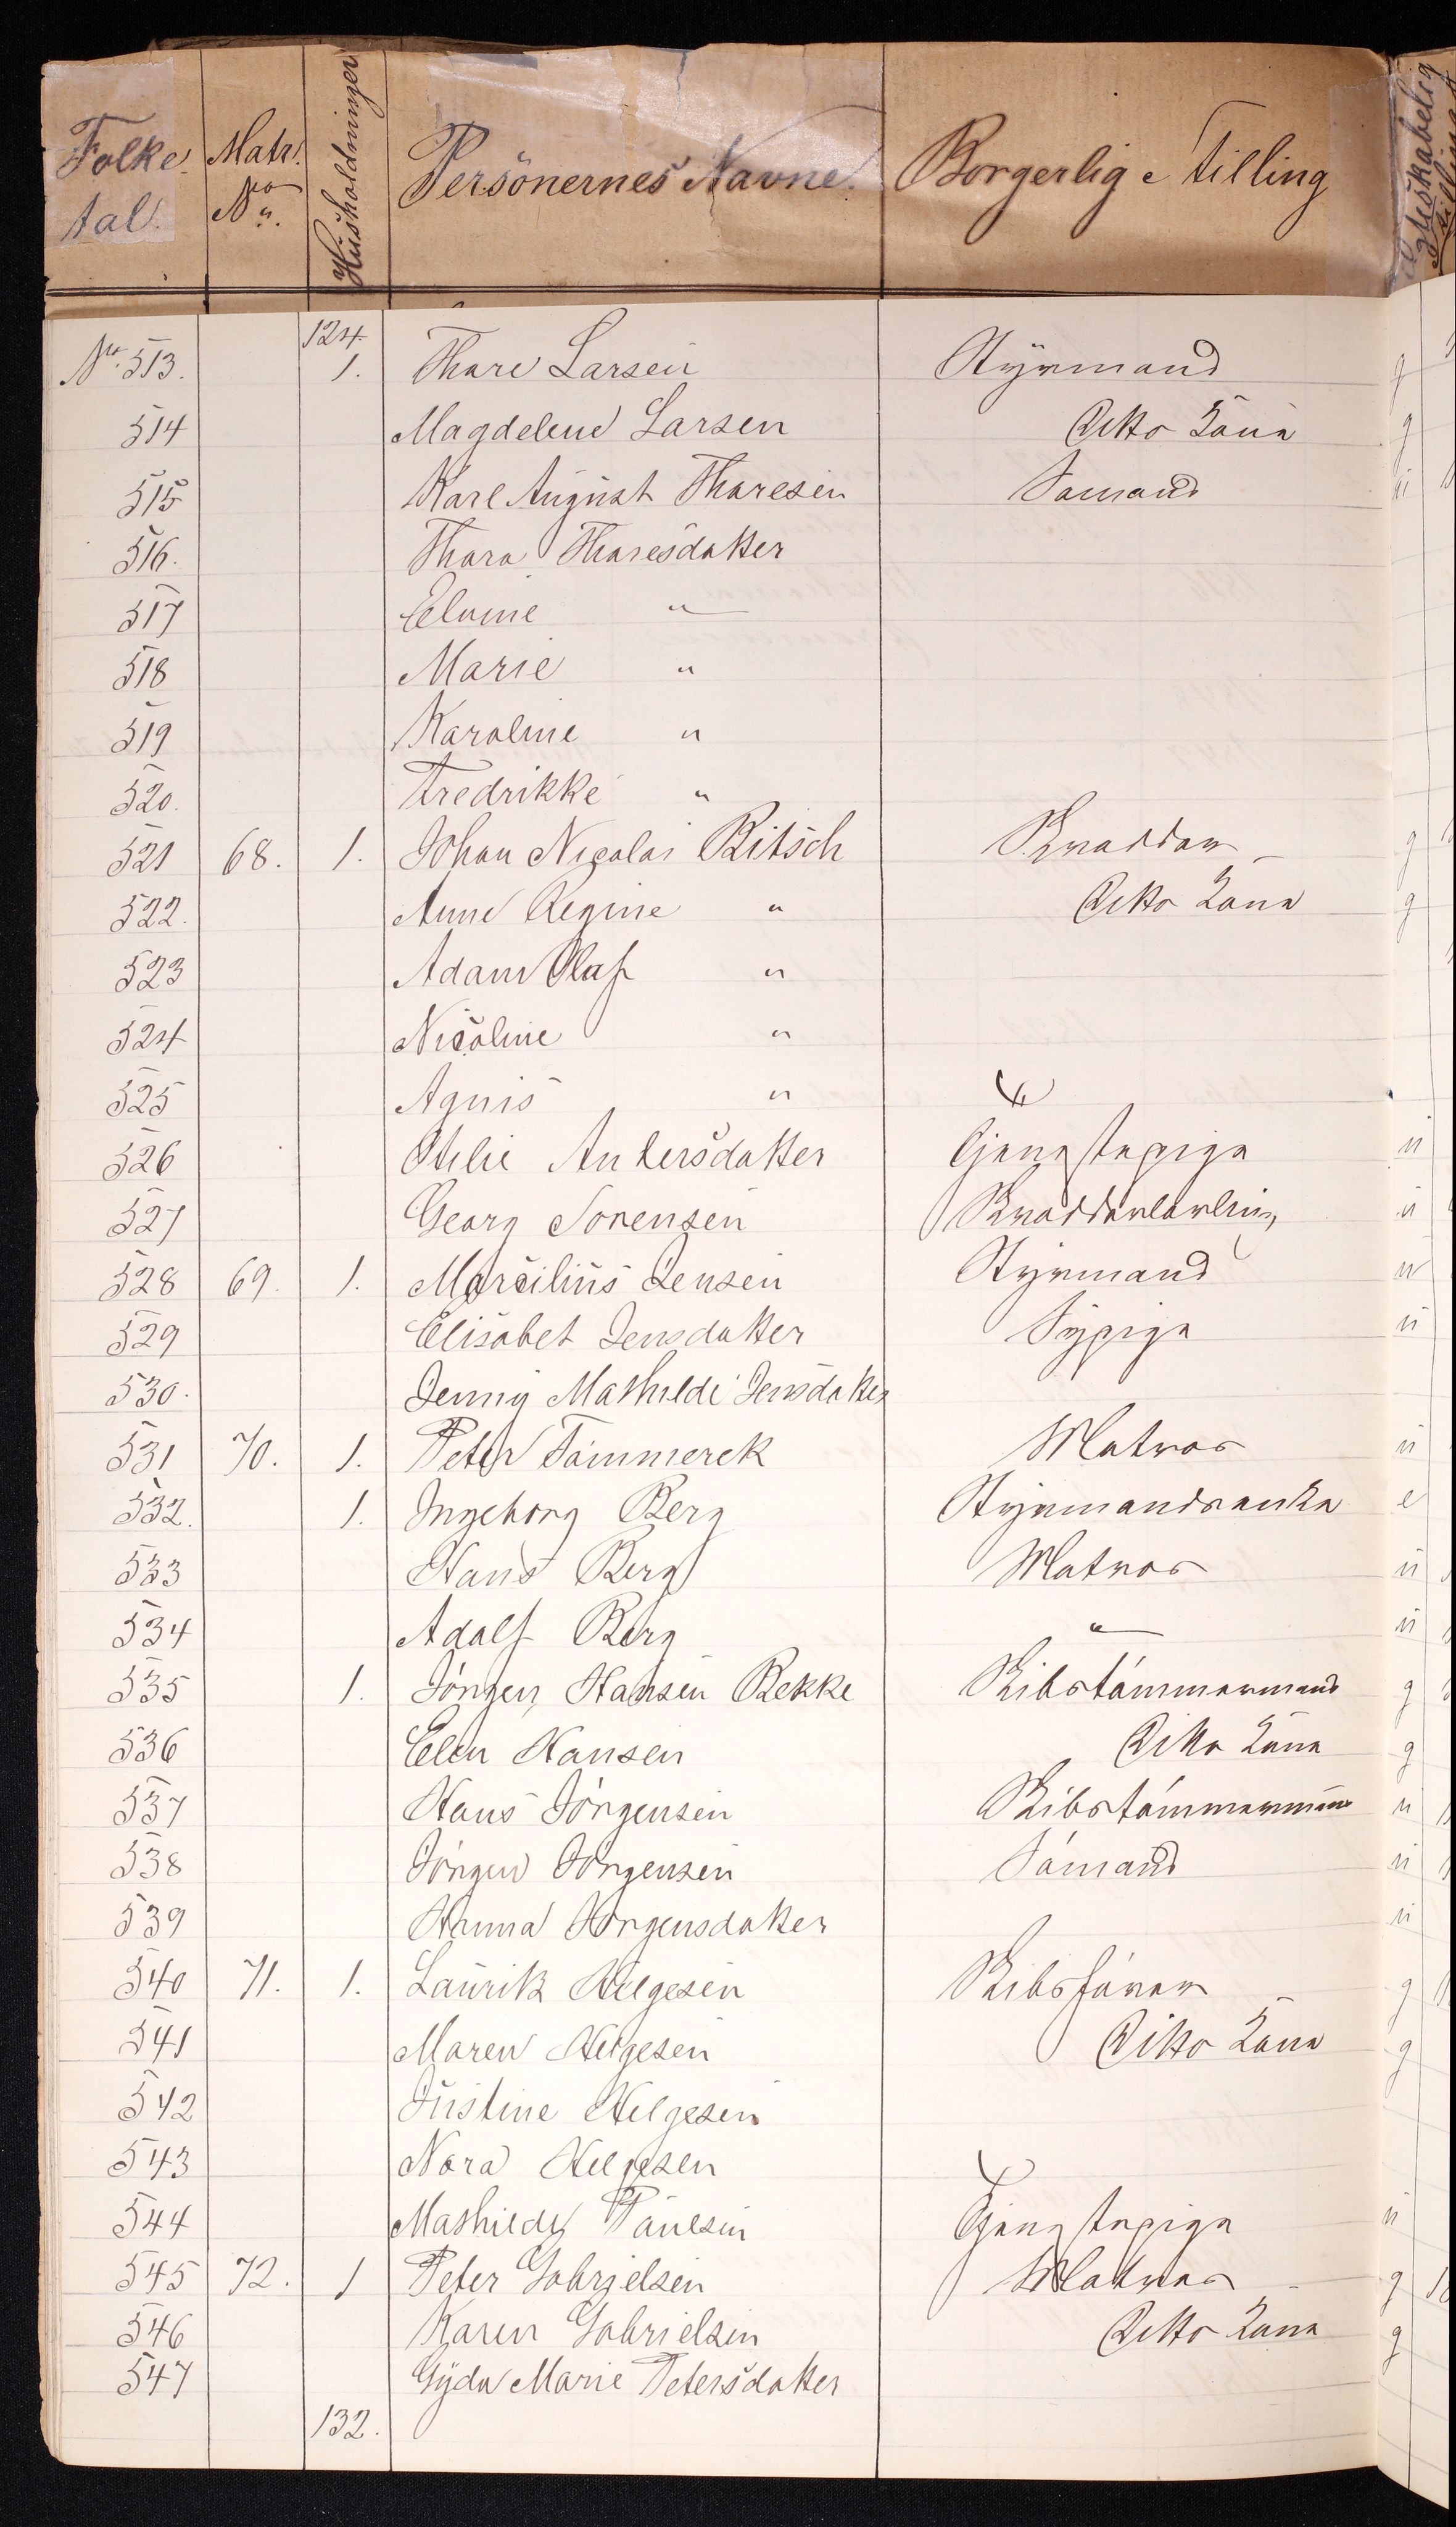 Folketal. Matr. No. Husholdninger Personernes Navne. Borgerlig Stilling Egteskabelig
124.
No. 513. 1. Thare Larsen Styrmand g
514 Magdelene Larsen Ditto Kone g
515 Karl August Tharesen Sømand u
516. Thara Tharesdatter
517 Elvine "
518 Marie "
519 Karoline "
520. Fredrikke "
521 68. 1. Johan Nicolai Bitsch Skrædder g
522. Anne Regine " Ditto Kone g
523 Adam Olaf "
524 Nicoline "
525 Agnis "
526 Otelie Andersdatter Tjenestepige u
527 Georg Sorensen Skrædderlærling u
528 69. 1. Marcilius Jensen Styrmand u
529 Elisabet Jensdatter Sypige u
530. Jenny Mathilde Jensdatter
531 70. 1. Peter Tømmerek Matros u
532. 1. Ingeborg Berg Styrmandsenke e
533 Hans Berg Matros u
534 Adolf Berg " u
535 1. Jórgen Hansen Bekke Skibstómmermand g
536 Elen Hansen Ditto Kone g
537 Hans Jórgensen Skibstómmermand u
538 Jórgen Jórgensen Sómand u
539 Anna Jorgensdatter u
540 71. 1. Laurik Helgesen Skibsfórer g
541 Maren Helgesen Ditto Kone g
542 Justine Helgesen
543 Nora Helgesen
544 Mathilde Paulsen Tjenestepige u
545 72. 1 Peter Gabrielsen Matros g
546 Karen Gabrielsen Ditto Kone g
547 Gyda Marie Petersdatter
132.